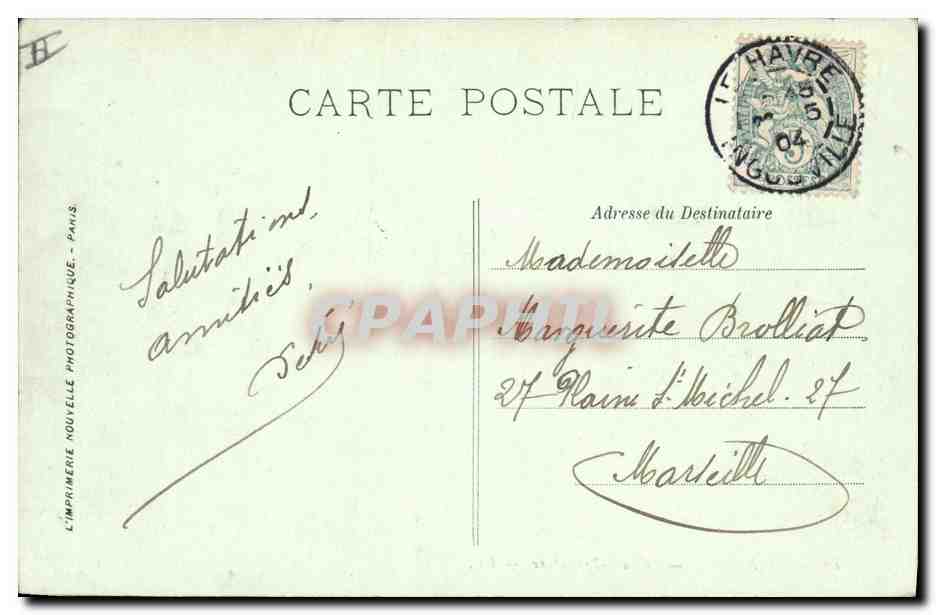 II
CARTE POSTALE
LE HAVRE
45
5
04
INGOUVILLE
Adresse du Destinataire
Salutations,
amitiés,
Mademoiselle
Marguerite Brolliat
27 Plaine St Michel. 27
Marseille
CPAPHIL
L'IMPRIMERIE NOUVELLE PHOTOGRAPHIQUE. - PARIS.